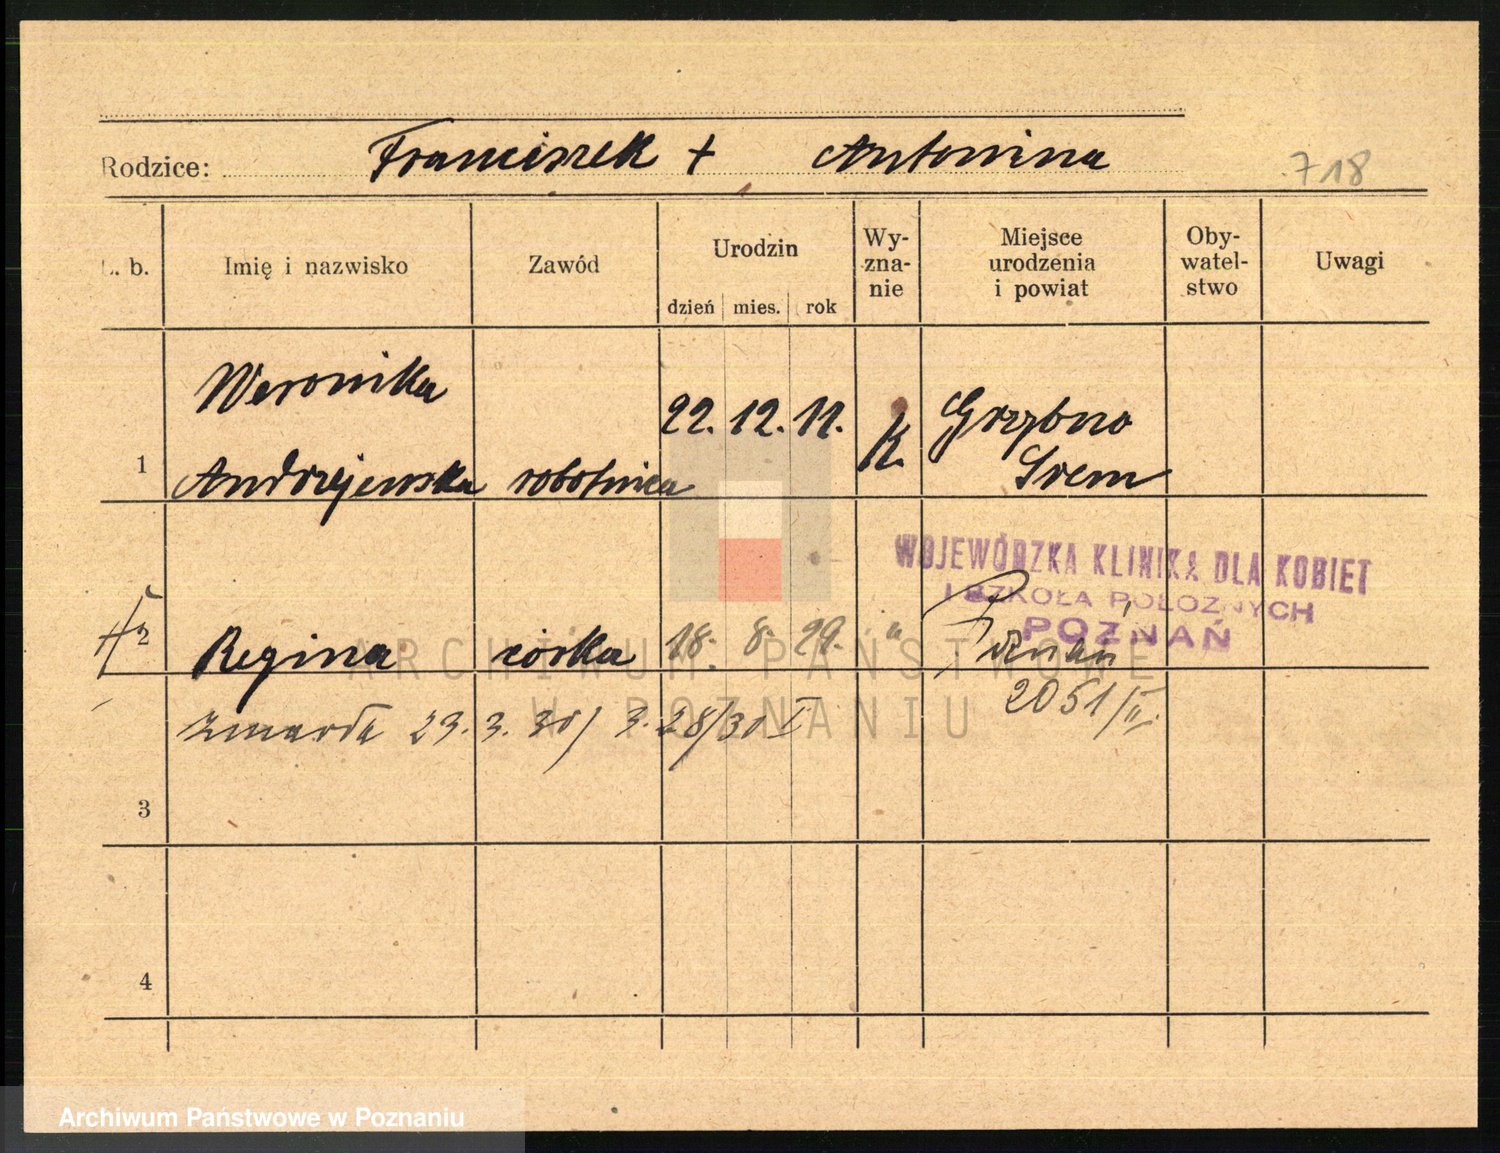 Rodzice: Franciszek + Antonina
718
L. b.
Imię i nazwisko
Zawód
Urodzin
dzień mies. rok
Wy-
zna-
nie
Miejsce
urodzenia
i powiat
Oby-
watel-
stwo
Uwagi
Weronika
22. 12. 11.
K.
Grzybno
1 Andrzejewska robotnica
Śrem
WOJEWÓDZKA KLINIKA DLA KOBIET
I SZKOŁA POŁOŻNYCH
POZNAŃ
2 Regina córka 18. 8. 29. " Poznań
zmarła 23. 3. 30/ 3.28/30 I
2051/II.
3
4
ARCHIWUM PAŃSTWOWE
W POZNANIU
Archiwum Państwowe w Poznaniu